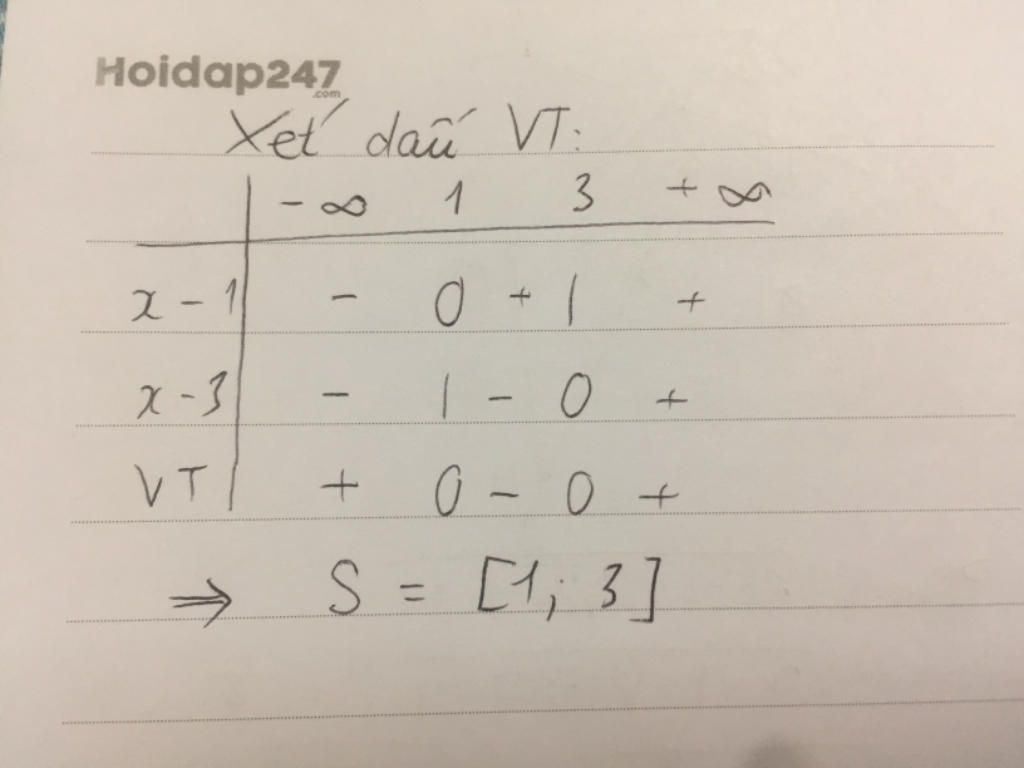 Hoidap247
.com
Xét dấu VT:
-∞ 1 3 +∞
x-1 - 0 + | +
x-3 - | - 0 +
VT + 0 - 0 +
⇒ S = [1; 3]